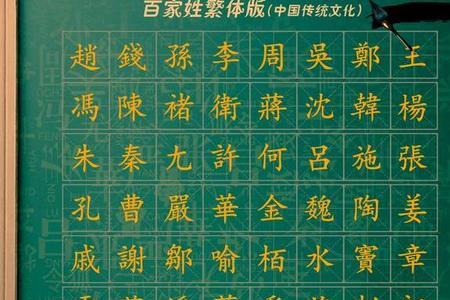 百家姓繁体版(中国传统文化)
趙錢孫李周吳鄭王
馮陳褚衛蔣沈韓楊
朱秦尤許何呂施張
孔曹嚴華金魏陶姜
戚謝鄒喻栢水竇章